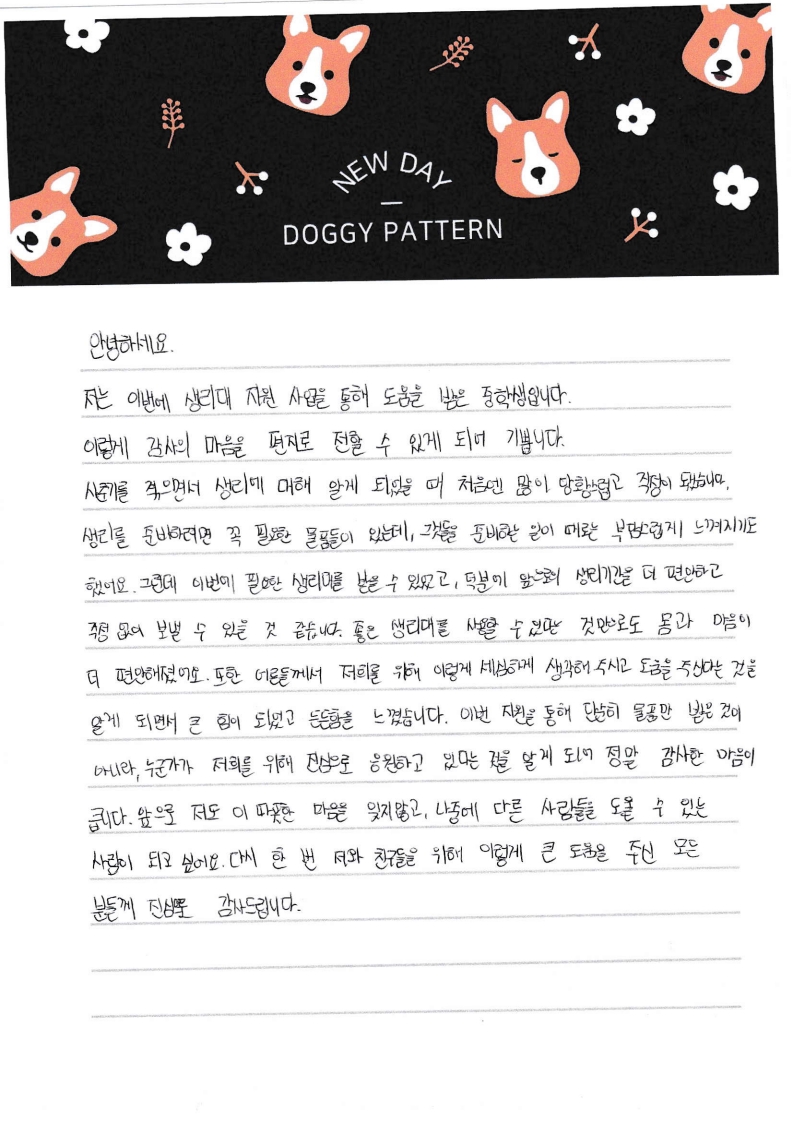 NEW DAY
DOGGY PATTERN
안녕하세요.
저는 이번에 생리대 지원 사업을 통해 도움을 받은 중학생입니다.
이렇게 감사의 마음을 편지로 전할 수 있게 되어 기쁩니다.
사춘기를 겪으면서 생리에 대해 알게 되었을 때 처음엔 많이 당황스럽고 걱정이 되었습니다.
생리를 준비하려면 꼭 필요한 물품들이 있는데, 그것들을 준비하는 일이 때로는 부담스럽게 느껴지기도
했어요. 그런데 이번에 필요한 생리대를 받을 수 있었고, 덕분에 앞으로의 생리기간을 더 편안하고
걱정 없이 보낼 수 있을 것 같습니다. 좋은 생리대를 사용할 수 있다는 것만으로도 몸과 마음이
더 편안해졌어요. 또한 어른들께서 저희를 위해 이렇게 세심하게 생각해 주시고 도움을 주신다는 것을
알게 되면서 큰 힘이 되었고 든든함을 느꼈습니다. 이번 지원을 통해 단순히 물품만 받은 것이
아니라, 누군가가 저희를 위해 진심으로 응원하고 있다는 것을 알게 되어 정말 감사한 마음이
큽니다. 앞으로 저도 이 따뜻한 마음을 잊지않고, 나중에 다른 사람들을 도울 수 있는
사람이 되고 싶어요. 다시 한 번 저와 친구들을 위해 이렇게 큰 도움을 주신 모든
분들께 진심으로 감사드립니다.